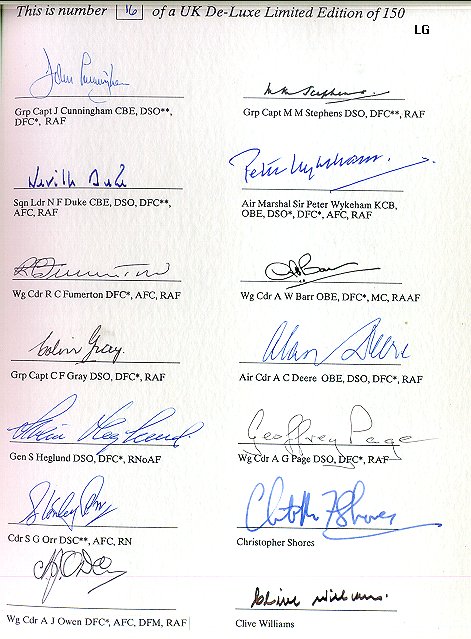 This is number 16 of a UK De-Luxe Limited Edition of 150
LG
John Cunningham
Grp Capt J Cunningham CBE, DSO**,
DFC*, RAF
M M Stephens
Grp Capt M M Stephens DSO, DFC**, RAF
Neville Duke
Sqn Ldr N F Duke CBE, DSO, DFC**,
AFC, RAF
Peter Wykeham.
Air Marshal Sir Peter Wykeham KCB,
OBE, DSO*, DFC*, AFC, RAF
R C Fumerton
Wg Cdr R C Fumerton DFC*, AFC, RAF
A W Barr
Wg Cdr A W Barr OBE, DFC*, MC, RAAF
Colin Gray.
Grp Capt C F Gray DSO, DFC*, RAF
Alan Deere
Air Cdr A C Deere OBE, DSO, DFC*, RAF
Svein Heglund
Gen S Heglund DSO, DFC*, RNoAF
Geoffrey Page
Wg Cdr A G Page DSO, DFC*, RAF
Stanley Orr
Cdr S G Orr DSC**, AFC, RN
Christopher F Shores
Christopher Shores
A J Owen
Wg Cdr A J Owen DFC*, AFC, DFM, RAF
Clive Williams.
Clive Williams